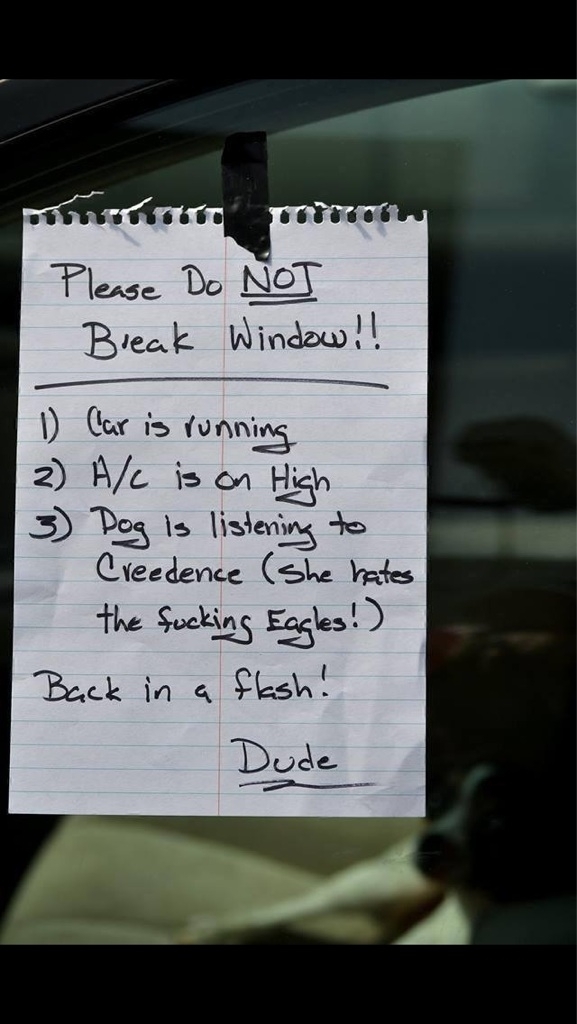 Please Do NOT
Break Window!!
1) Car is running
2) A/C is on High
3) Dog is listening to
Creedence (she hates
the fucking Eagles!)
Back in a flash!
Dude